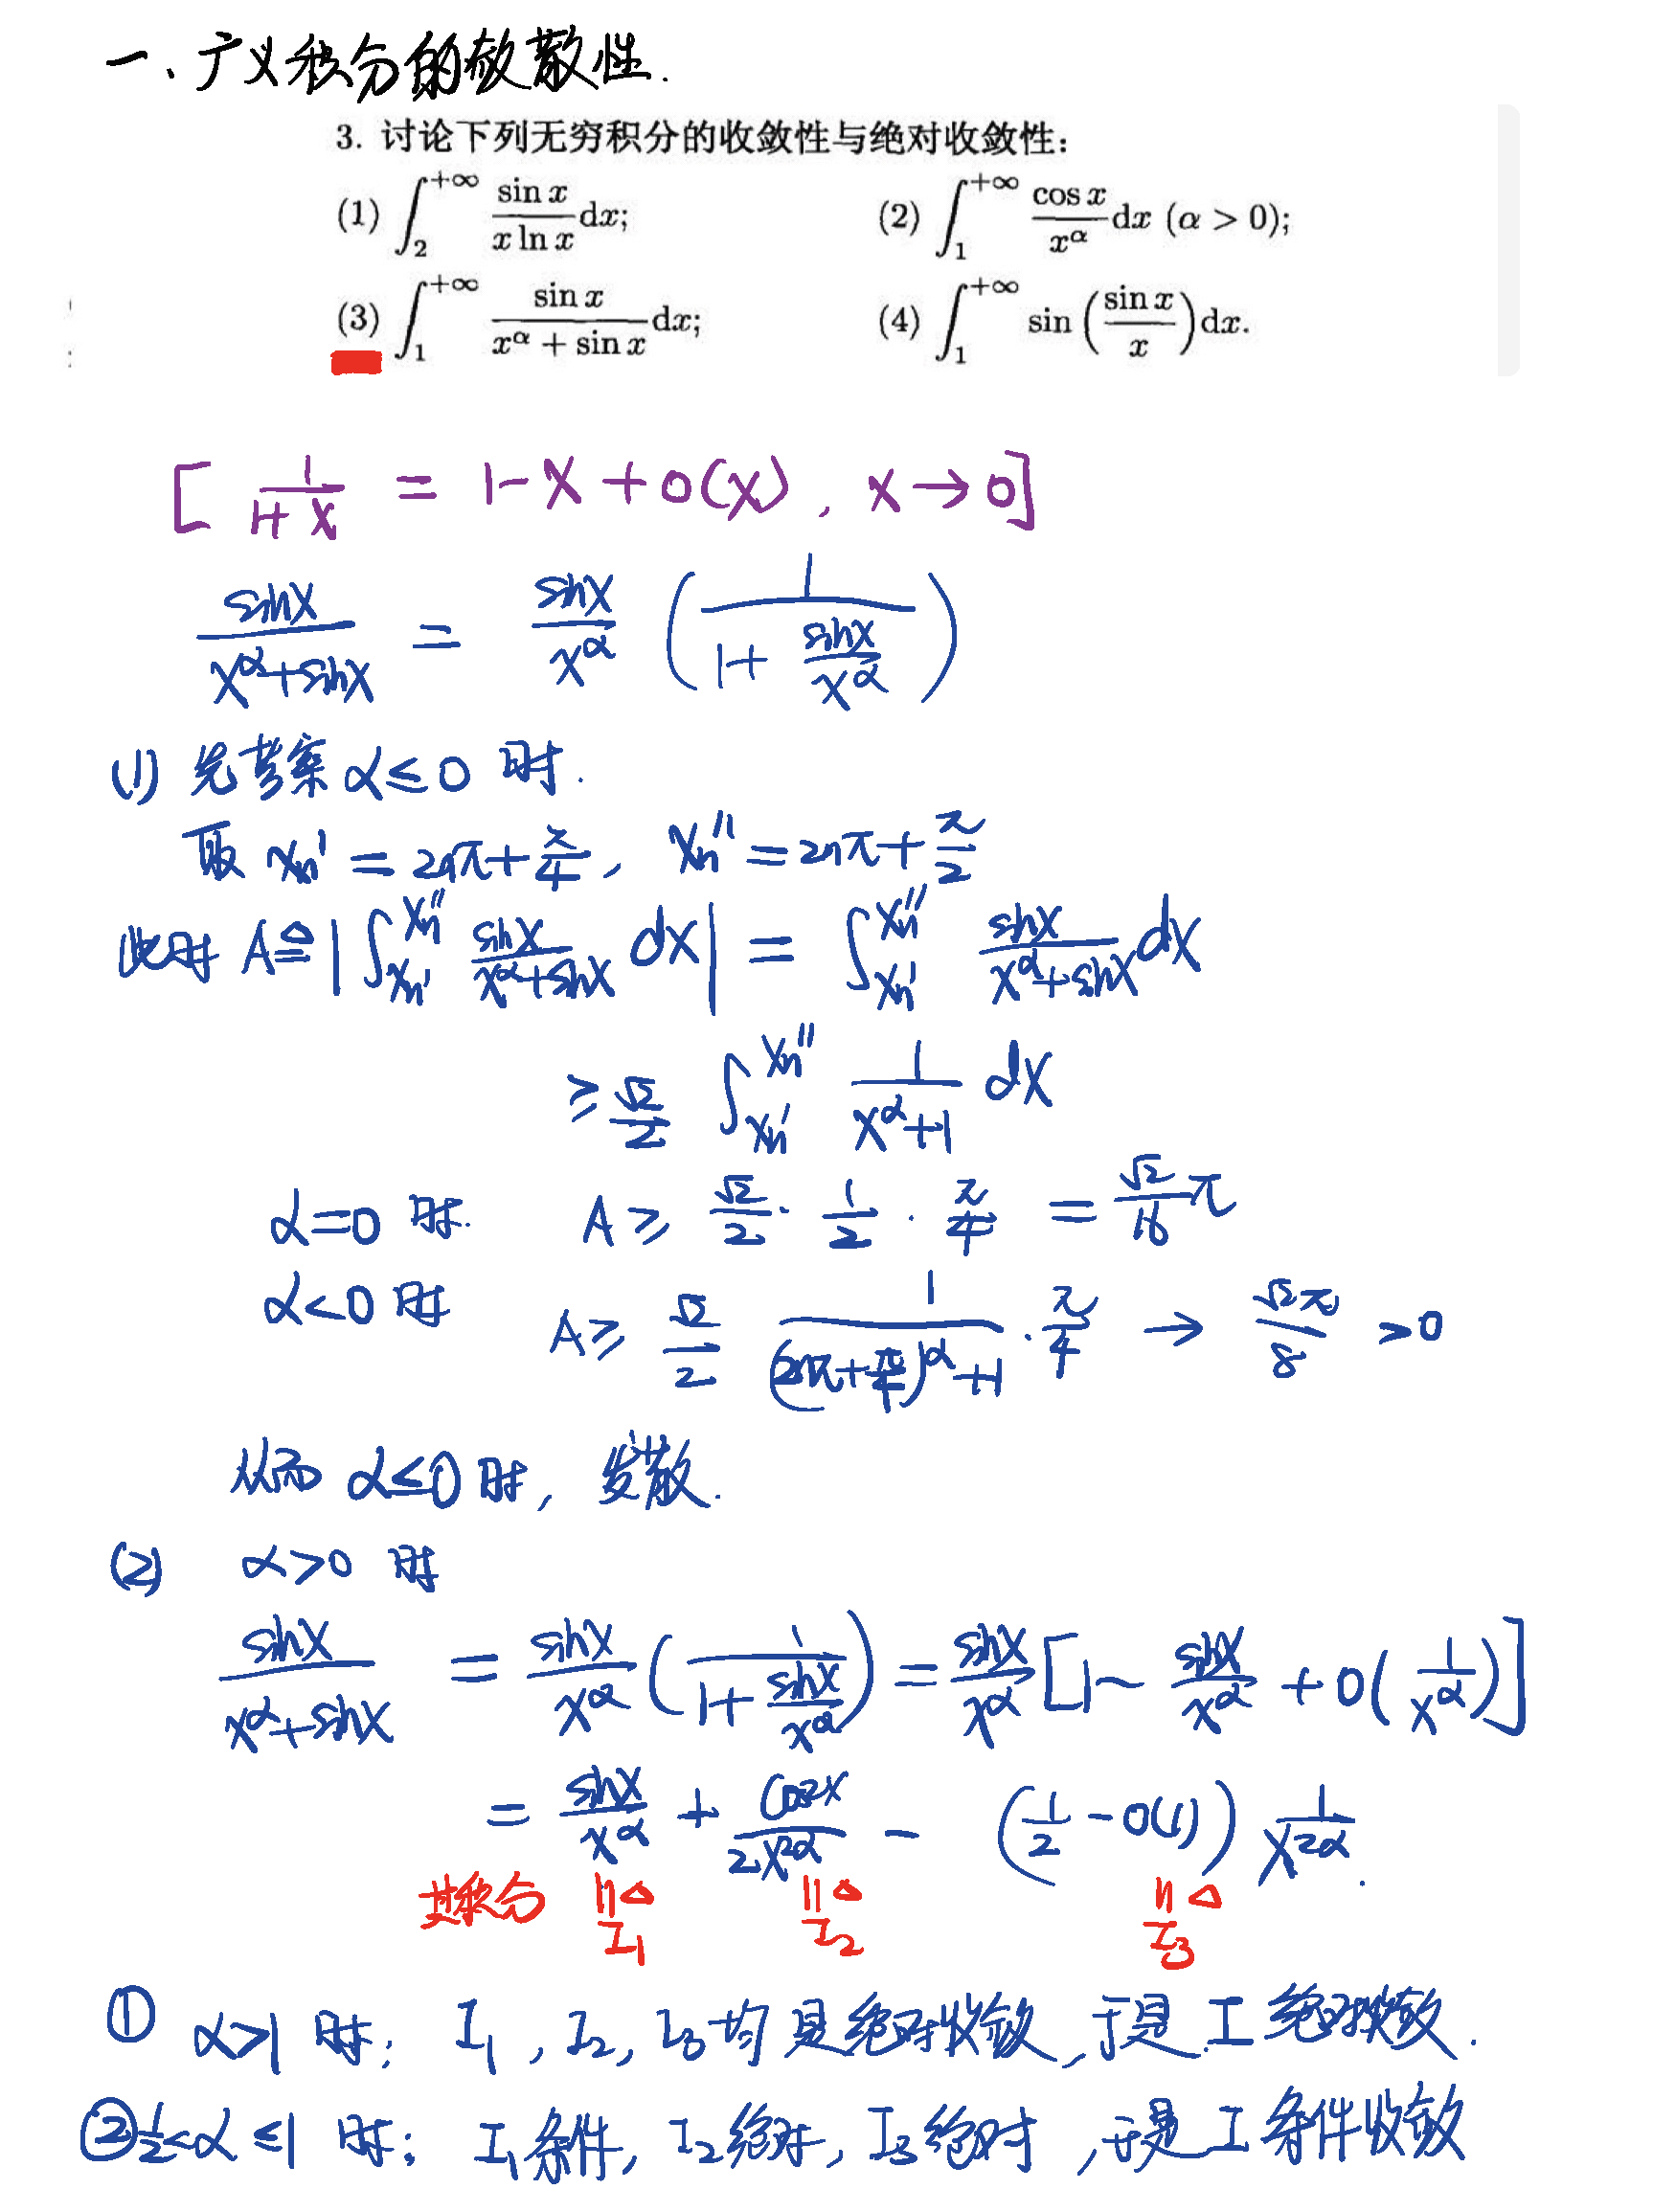 一、广义积分的敛散性.
3. 讨论下列无穷积分的收敛性与绝对收敛性:
(1) ∫_2^{+∞} \frac{sin x}{x ln x} dx; (2) ∫_1^{+∞} \frac{cos x}{x^α} dx (α > 0);
(3) ∫_1^{+∞} \frac{sin x}{x^α + sin x} dx; (4) ∫_1^{+∞} sin (\frac{sin x}{x}) dx.
[ \frac{1}{1+x} = 1-x+o(x), x→0]
\frac{sinx}{x^α+sinx} = \frac{sinx}{x^α} (\frac{1}{1+\frac{sinx}{x^α}})
(1) 先考察 α≤0 时.
取 x_n' = 2nπ+\frac{π}{4}, x_n'' = 2nπ+\frac{π}{2}
此时 A≜|∫_{x_n'}^{x_n''} \frac{sinx}{x^α+sinx} dx| = ∫_{x_n'}^{x_n''} \frac{sinx}{x^α+sinx} dx
≥\frac{√2}{2} ∫_{x_n'}^{x_n''} \frac{1}{x^α+1} dx
α=0 时. A≥ \frac{√2}{2}·\frac{1}{2}·\frac{π}{4} = \frac{√2}{16}π
α<0 时 A≥ \frac{√2}{2} \frac{1}{(2nπ+\frac{π}{4})^α+1}·\frac{π}{4} → \frac{√2π}{8} >0
从而 α≤0 时, 发散.
(2) α>0 时
\frac{sinx}{x^α+sinx} = \frac{sinx}{x^α} (\frac{1}{1+\frac{sinx}{x^α}}) = \frac{sinx}{x^α} [1-\frac{sinx}{x^α}+o(\frac{1}{x^α})]
= \frac{sinx}{x^α} + \frac{cos2x}{2x^{2α}} - (\frac{1}{2}-o(1)) \frac{1}{x^{2α}}.
其积分 ≜I_1 ≜I_2 ≜I_3
① α>1 时: I_1, I_2, I_3 均是绝对收敛, 于是 I 绝对收敛.
② \frac{1}{2}<α≤1 时: I_1条件, I_2绝对, I_3绝对, 于是 I 条件收敛